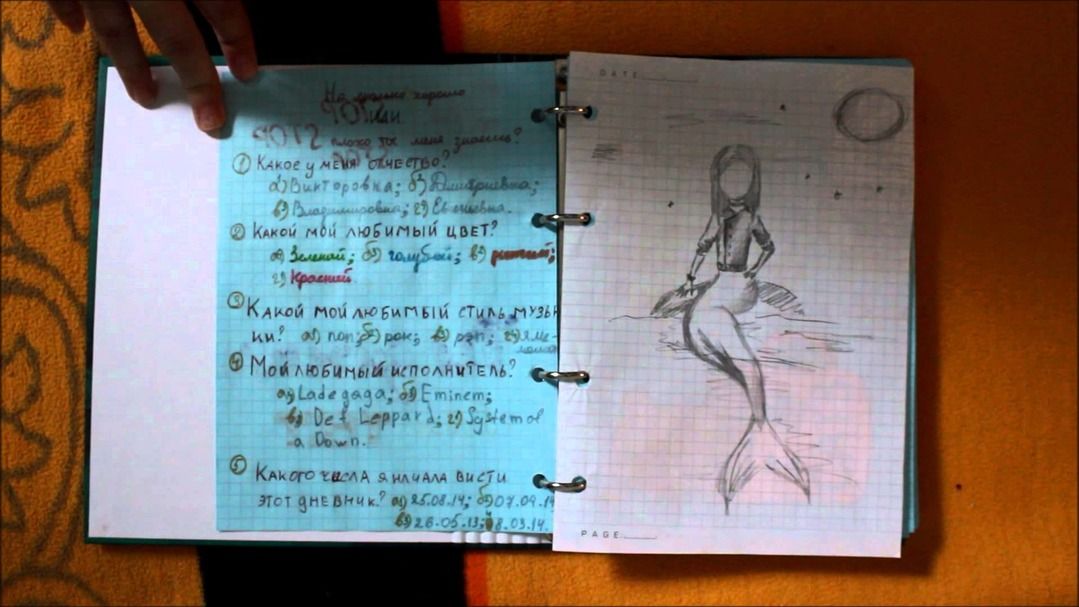 На сколько хорошо
или
плохо ты меня знаешь?
① Какое у меня отчество?
а) Викторовна; б) Дмитриевна;
в) Владимировна; г) Евгеньевна.
② Какой мой любимый цвет?
а) Зеленый; б) голубой; в)
г) Красный.
③ Какой мой любимый стиль музы
ки? а) поп; б) рок; в) рэп; г)
④ Мой любимый исполнитель?
а) Lade gaga; б) Eminem;
в) Def Leppard; г) System of
a Down.
⑤ Какого числа я началa висти
этот дневник? а) 25.08.14; б) 07.09.14
в) 26.05.13; 8.03.14.
DATE
PAGE